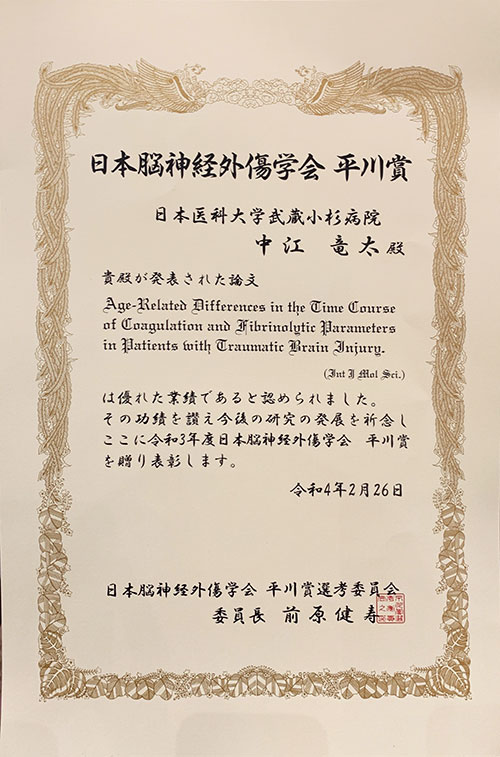 日本脳神経外傷学会 平川賞
日本医科大学武蔵小杉病院
中江 竜太 殿
貴殿が発表された論文
Age-Related Differences in the Time Course
of Coagulation and Fibrinolytic Parameters
in Patients with Traumatic Brain Injury.
(Int J Mol Sci.)
は優れた業績であると認められました。
その功績を讃え今後の研究の発展を祈念し
ここに令和3年度日本脳神経外傷学会 平川賞
を贈り表彰します。
令和4年2月26日
日本脳神経外傷学会 平川賞選考委員会
委員長 前原健寿